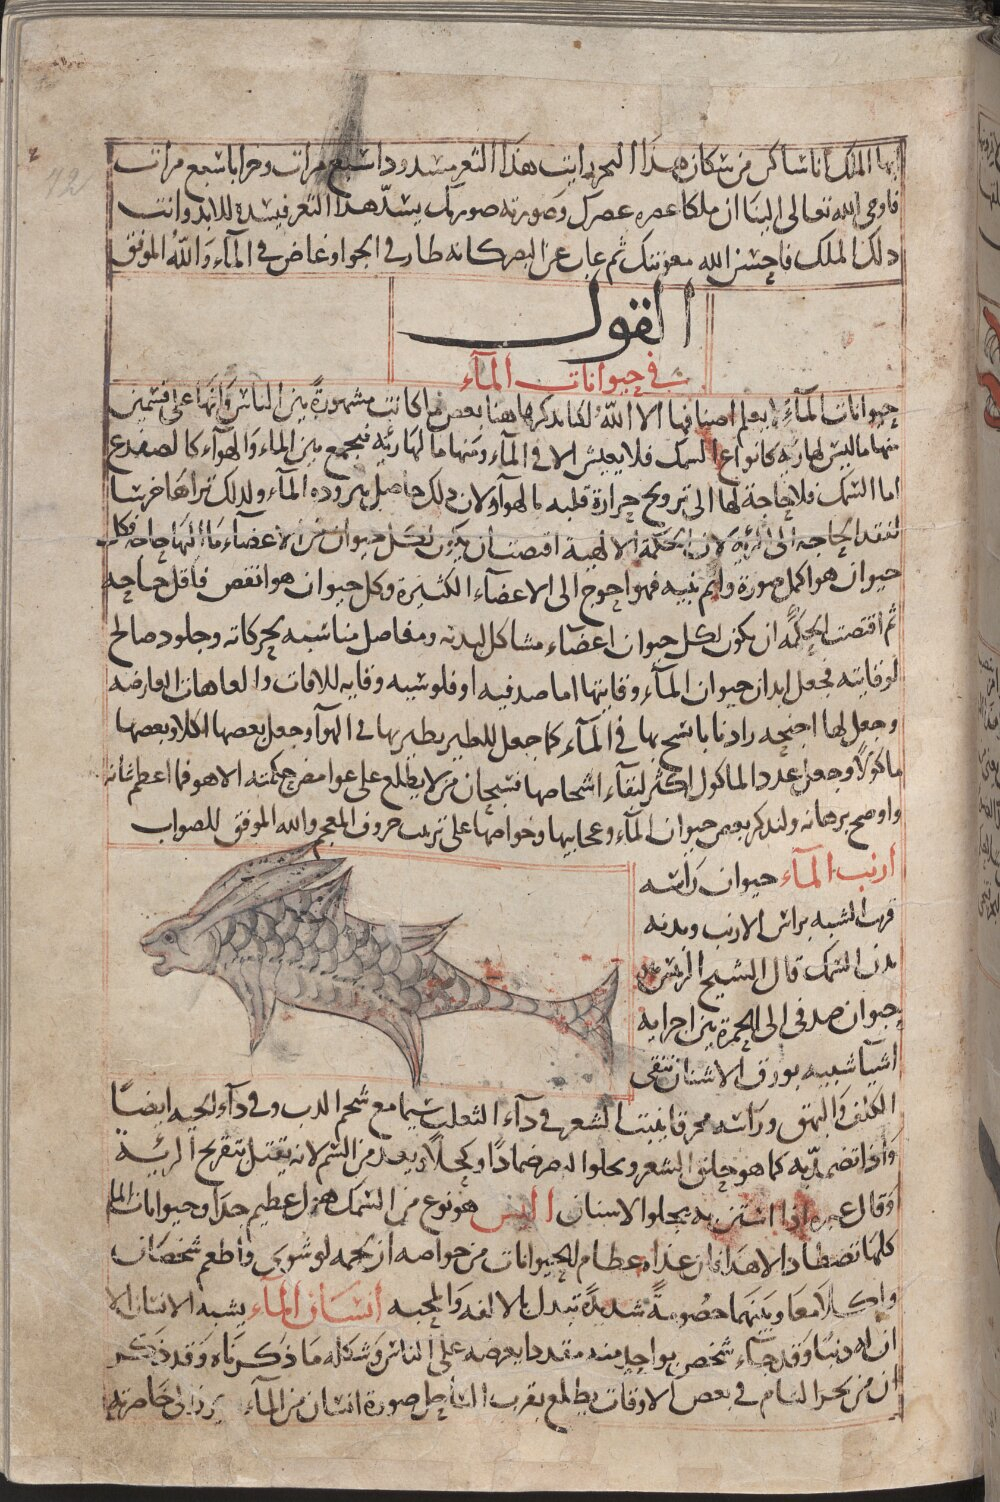 ايها الملك انا ساكن من سكان هذا البحر رايت هذا الثغر مسدودا سبع مرات وخرابا سبع مرات
فاوحى الله تعالى الينا ان ملكا عصره عصرك وصورته صورتك يسد هذا الثغر فيسده للابد وانت
ذلك الملك فاحسن الله معونتك ثم غاب عن البصر كانه طار في الجو او غاض في الماء والله الموفق
القول
في حيوانات الماء
حيوانات الماء لا يعلم اصنافها الا الله لكنا نذكر هاهنا بعض ما كانت مشهورة بين الناس وانها على قسمين
منها ما ليس لها رية كانواع السمك فلا يعيش الا في الماء ومنها ما لها رية فيجمع بين الماء والهواء كالضفدع
اما السمك فلا حاجة لها الى ترويح حرارة قلبه بالهواء لان ذلك حاصل ببرودة الماء ولذلك تراها خرسا
لفقد الحاجة الى الرية لان الحكمة الالهية اقتضت ان يكون لكل حيوان من الاعضاء ما اليها حاجة فكل
حيوان هو اكمل صورة واتم بنية فهو احوج الى الاعضاء الكثيرة وكل حيوان هو انقص فاقل حاجة
ثم اقتضت الحكمة ان يكون لكل حيوان اعضاء مشاكل لبدنه ومفاصل مناسبه بحركاته وجلود صالح
لوقايته فجعل ابدان حيوان الماء وقايتها اما صدفيه او فلوسيه وقاية للافات والعاهات العارضة
وجعل لها اجنحة واذنابا تسبح بها في الماء كما جعل للطير يطير بها في الهواء وجعل بعضها اكلا وبعضها
ماكولا وجعل عدد الماكول اكثر لبقاء اشخاصها فسبحان من لا يطلع على غوامض حكمته الا هو فما اعظم شانه
واوضح برهانه ولنذكر بعض حيوان الماء وعجايبها وخواصها على ترتيب حروف المعجم والله الموفق للصواب
ارنب الماء حيوان راسه
قريب الشبه براس الارنب وبدنه
بدن السمك قال الشيخ الرئيس
حيوان صدفي الى الحمرة بين اجزايه
اشيا شبيه بورق الاشنان تنقى
الكلف والبهق وراسه محرقا ينبت الشعر في داء الثعلب سيما مع شحم الدب وفي داء الحية ايضا
واذا تضمد به كما هو حلق الشعر ويجلو البصر ضمادا وكحلا ويعد من السم لانه يقتل بتقريح الرئة
وقال غيره اذا استن به يجلو الاسنان هو نوع من السمك عظيم جدا وحيوانات الماء
كلها تصطاد الا هذا فان غذاه عظام الحيوانات من خواصه ان لحمه لو شوي واطعم شخصان
واكلا معا وبينهما خصومة شديدة تبدل بالالفة والمحبة انسان الماء يشبه الانسان الا
ان له ذنبا وقد جاء شخص بواحد منه مقددا يعرضه على الناس وشكله ما ذكرناه وقد ذكر
ان من بحر الشام في بعض الاوقات يطلع بقرب الساحل صورة انسان من الماء